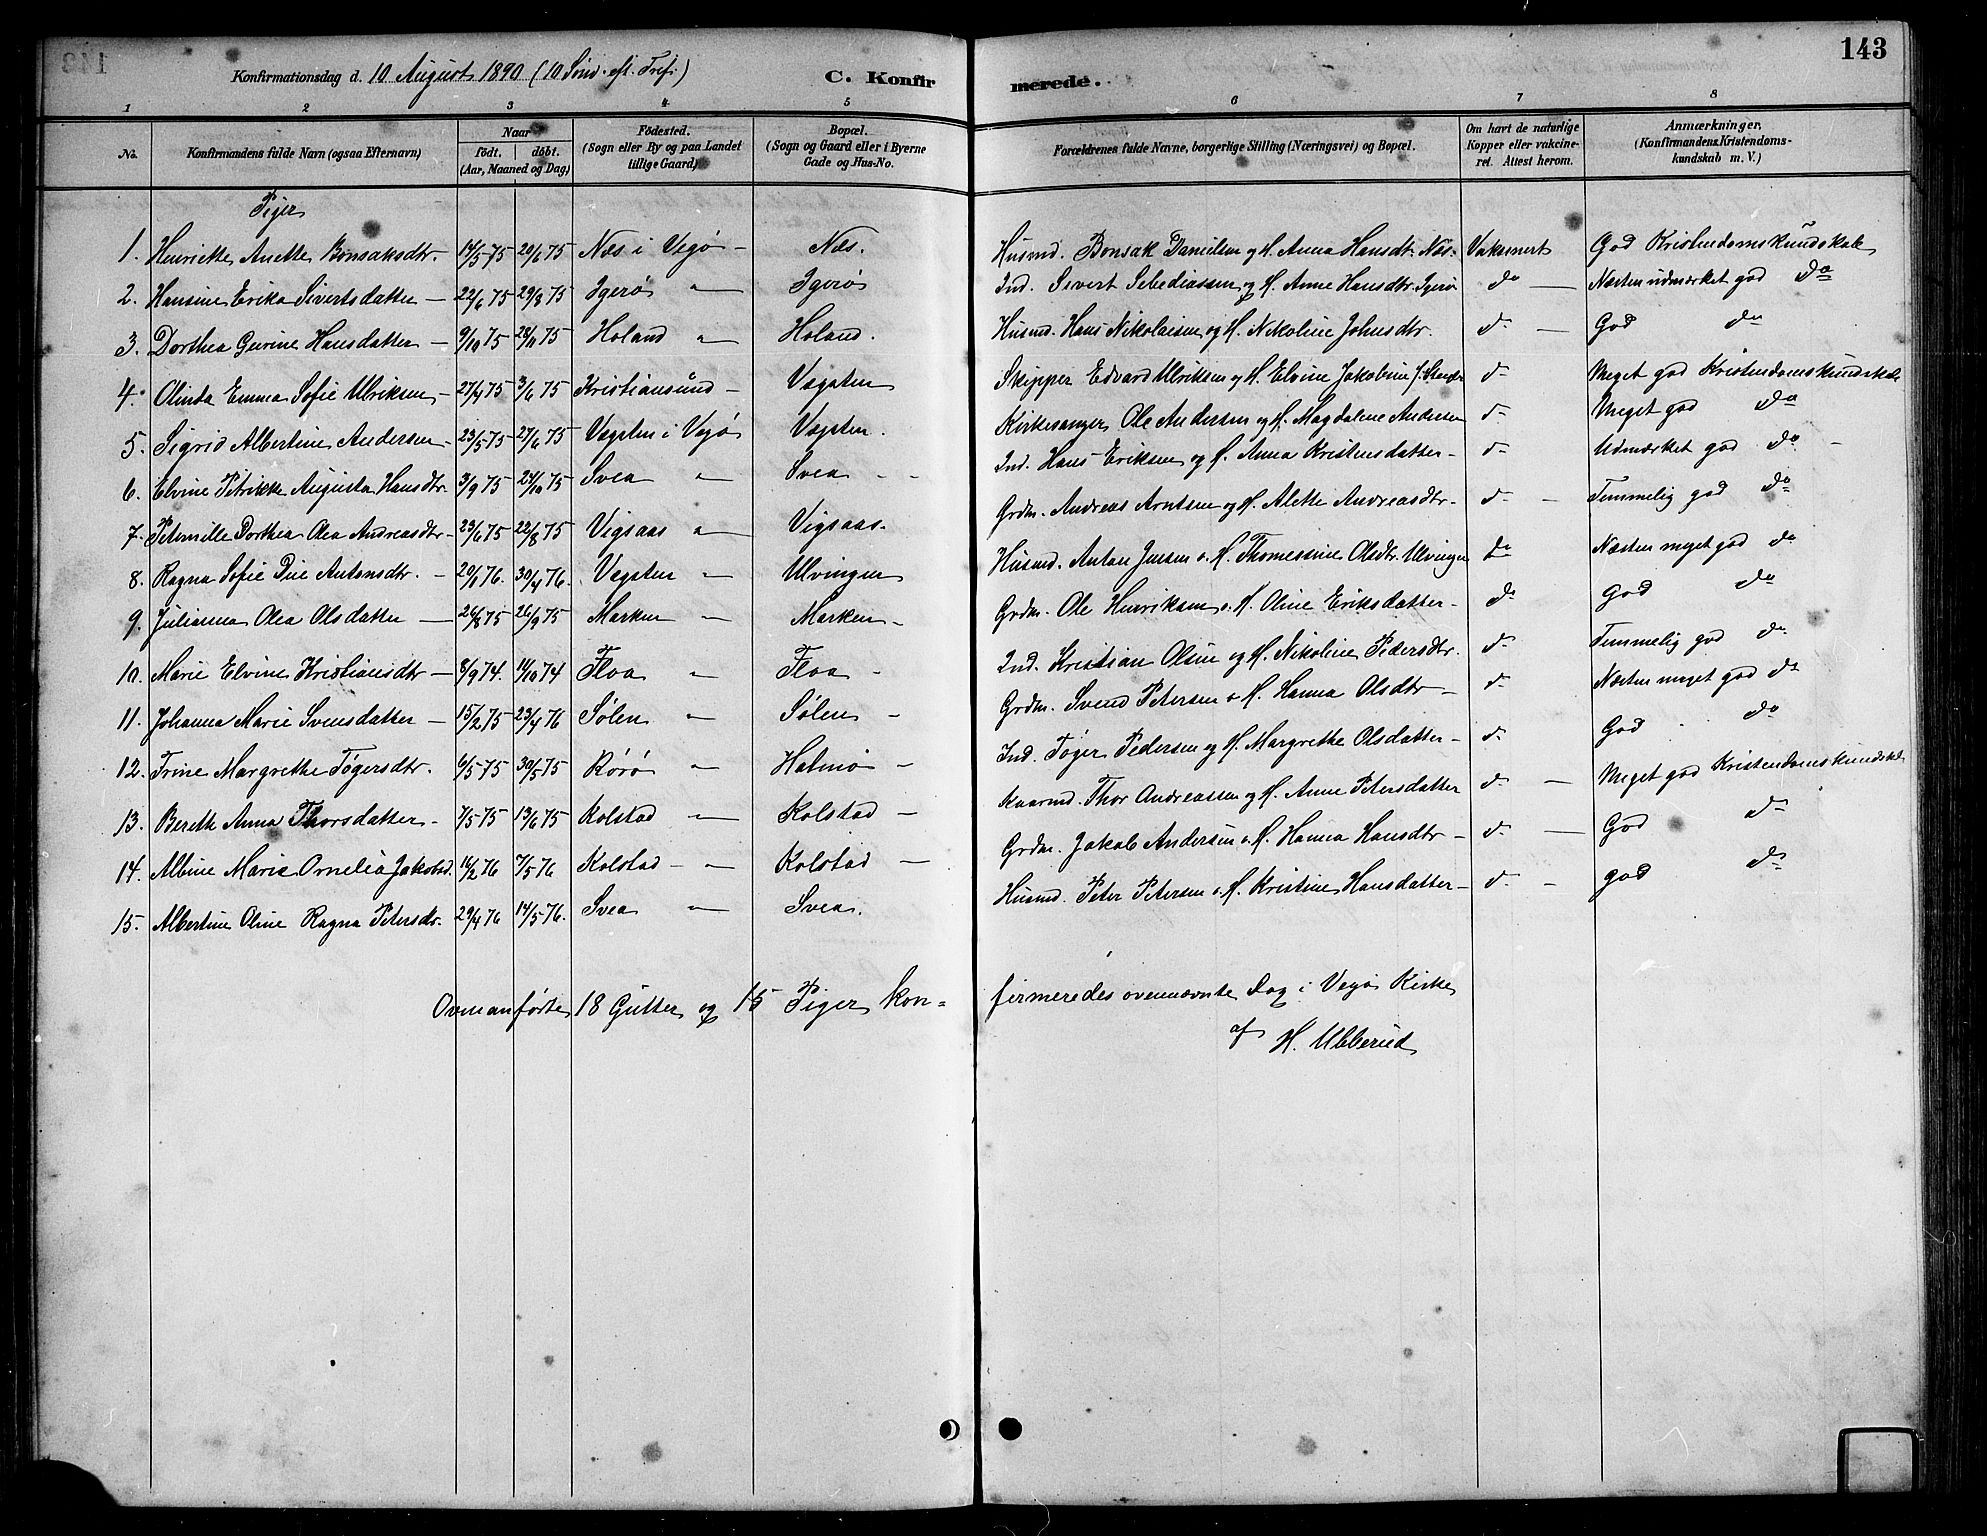 143
Konfirmationsdag d. 10 August 1890 (10 Sönd. eft. Tref.)
C. Konfirmerede.
1 2 3 4 5 6 7 8
No. Konfirmandens fulde Navn (ogsaa Efternavn) Naar födt. döbt. (Aar, Maaned og Dag) Födested. (Sogn eller By og paa Landet tillige Gaard) Bopæl. (Sogn og Gaard eller i Byerne Gade og Hus-No. Forældrenes fulde Navne, borgerlige Stilling (Næringsvei) og Bopæl. Om havt de naturlige Kopper eller vakcineret. Attest herom. Anmærkninger, (Konfirmandens Kristendomskundskab m. V.)
Piger
1. Henriette Anette Bonsaksdtr. 14/5 75 20/6 75 Næs i Vegø — Næs. Husmd. Bonsak Danielsen og H. Anna Hansdtr. Næs. Vaksinert God Kristendomskundskab
2. Hansine Erika Sivertsdatter — 22/6 75 29/8 75 Igerø " Igerø Ind. Sivert Sebediassen og H. Anne Hansdtr. Igerø do — Næsten udmærket god do
3. Dorthea Gurine Hansdatter — 9/10 75 28/11 75 Holand " Holand. Husmd. Hans Nikolaisen og H. Nikoline Johnsdtr. do — God do
4. Olinda Emma Sofie Ulriksen — 27/4 75 3/6 75 Kristiansund — Vegsten Skipper Edvard Ulriksen og H. Elvine Jakobine do Meget god Kristendomskundskab
5. Sigrid Albertine Andersen — 23/5 75 27/6 75 Vegsten i Vegø Vegsten. Kirkesanger Ole Andersen og H. Magdalene Andersen do Meget god do
6. Elvine Petrikke Augusta Hansdtr. 3/9 75 24/10 75 Svea " Svea Ind. Hans Eriksen og H. Anna Kristensdatter — do Udmærket god do
7. Peternille Dorthea Olea Andreasdtr — 23/6 75 22/8 75 Vigsaas " Vigsaas. Grdm. Andreas Arntsen og H. Alette Andreasdtr — do — Temmelig god do
8. Ragna Sofie Antonsdtr. — 20/1 76. 30/4 76. Vegsten " Ulvingen Husmd. Anton Jensen o. H. Thomessine Olsdtr. Ulvingen do Næsten meget god do
9. Julianna Olea Olsdatter — 26/8 75 26/9 75 Marken " Marken — Grdm. Ole Henriksen o. H. Oline Eriksdatter — do God do
10. Marie Elvine Kristiansdtr — 8/9 74. 11/10 74 Floa " Floa — Ind. Kristian Olsen og H. Nikoline Pedersdtr. do Temmelig god do
11. Johanna Marie Svensdatter — 15/2 75 23/4 76 Sølen " Sølen — Grdm. Svend Petersen o. H. Hanna Olsdtr — do Næsten meget god do
12. Trine Margrethe Tøgersdtr. 6/5 75 30/5 75 Rørø " Halmø — Ind. Tøger Pedersen og H. Margrethe Olsdatter — do God do
13. Bereth Anna Thorsdatter — 7/5 75 13/6 75 Kolstad " Kolstad — Kaarmd. Thor Andreassen og H. Anne Petersdatter do — Meget god Kristendomskundskab
14. Albine Marie Ornelia Jakobsd. 16/2 76 7/5 76 Kolstad — " Kolstad — Grdm. Jakob Andersen o. H. Hanna Hansdtr — do — God do
15. Albertine Oline Ragna Petersdtr. 29/4 76 14/5 76. Svea " Svea. Husmd. Peter Petersen o. H. Kristine Hansdatter — do — god do
Ovenanførte 18 Gutter og 15 Piger kon= firmeredes ovennævnte Dag i Vegø Kirke
af H. Ubberud